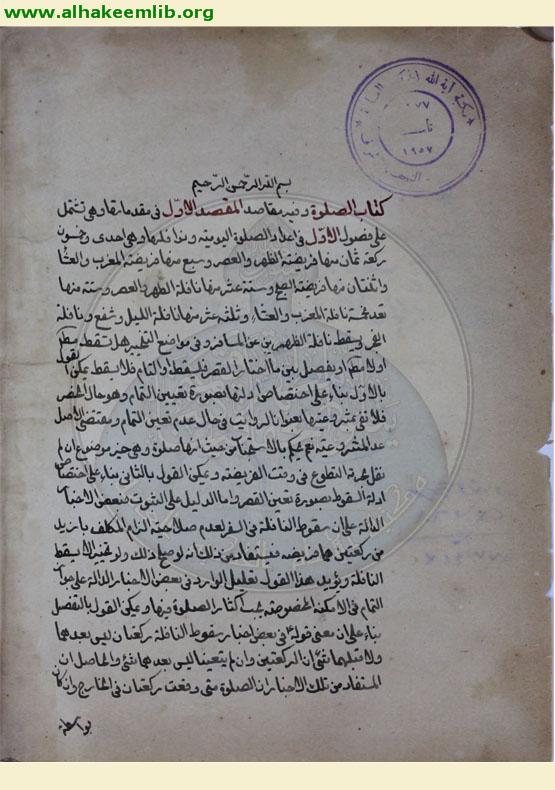 www.alhakeemlib.org
مكتبة آية الله
٧٧
١٩٥٧
بسم الله الرحمن الرحيم
كتاب الصلوة وفيه مقاصد المقصد الاوّل في مقدماتها وهي تشتمل
على فصول الاوّل في اعداد الصلوة اليومية ونوافلها وهي احدى وخمسون
ركعة ثمان منها فريضة الظهر والعصر وسبع منها فريضة المغرب والعشا
واثنتان منها فريضة الصبح وستة عشر منها نافلة الظهر والعصر وستة منها
نافلة المغرب والعشاء وثلثة عشر منها نافلة الليل وشفع ونافلة
الفجر ويسقط نافلة الظهرين عن المسافر وفي مواضع التخيير هل تسقط مطلقا
اولا مطلقا او يفصل بين ما اختار القصر فتسقط والتمام فلا يسقط يمكن القول
بالاوّل بناء على اختصاص ادلتها بصورة تعيين التمام وهو حال الحضر
فلا نفي مشروعيتها بعنوان الرواتب في حال عدم تعين التمام ومقتضى الاصل
عدم المشروعية نعم يحكم بالاستحباب من حيث انها صلوة وهي خير موضوع ان لم
نقل بحرمة التطوع في وقت الفريضة ويمكن القول بالثاني بناء على اختصاص
ادلة السقوط بصورة تعين القصر واما الدليل على الثبوت فبعض الاخبار
الدالة على ان سقوط النافلة في السفر لعدم صلاحية الزام المكلف بازيد
من ركعتين فريضة فيستفاد من ذلك انه لو صح ذلك ولو تخييرا لا يسقط
النافلة ويؤيد هذا القول تعليل الوارد في بعض الاخبار الدالة على جواز
التمام في الامكنة المخصوصة بحب اكثار الصلوة فيها ويمكن القول بالتفصيل
بناء على ان معنى قوله في بعض اخبار سقوط النافلة ركعتان ليس بعدهما
ولا قبلهما شئ ان الركعتين وان لم يتعينا ليس بعدهما شئ والحاصل ان
المستفاد من تلك الاخبار ان الصلوة متى وقعت ركعتان في الخارج وان كان